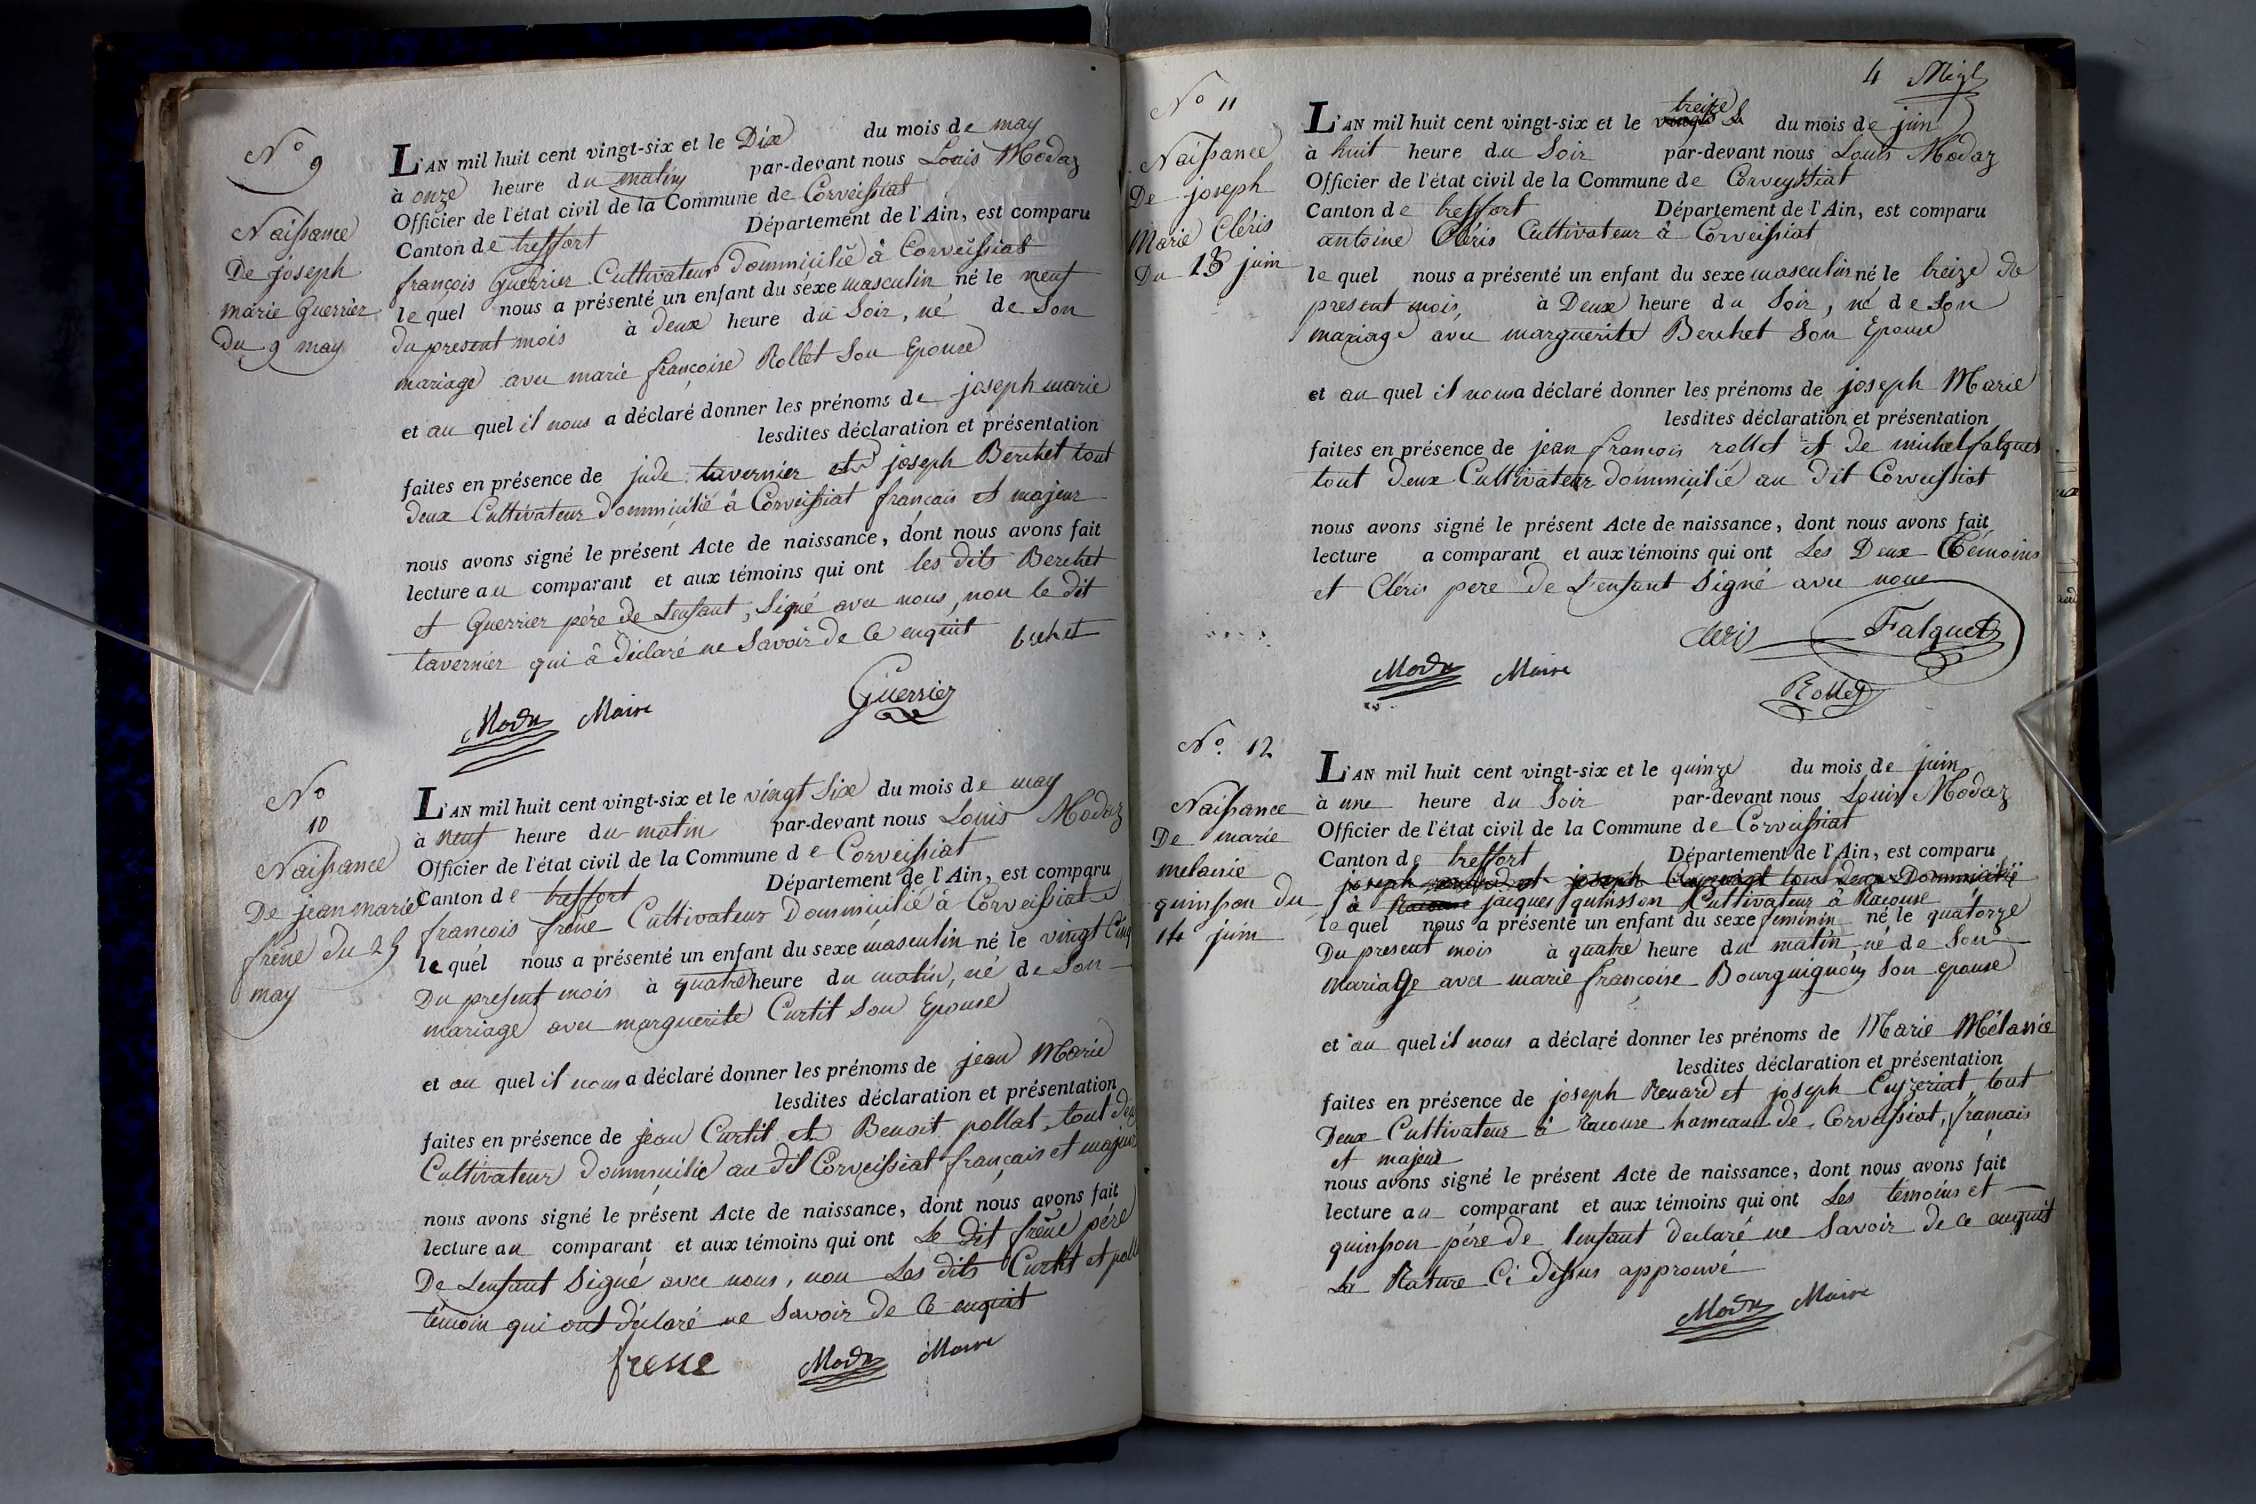 N° 9
Naissance
De joseph
marie Guerrier
du 9 may
L'AN mil huit cent vingt-six et le Dix du mois de may
à onze heure du matin par-devant nous Louis Modaz
Officier de l'état civil de la Commune de Corveissiat
Canton de treffort Département de l'Ain, est comparu
françois Guerrier Cultivateur Dommicilié à Corveissiat
le quel nous a présenté un enfant du sexe masculin né le neuf
du present mois à deux heure du Soir, né de Son
mariage avec marie françoise Rollet Son Epouse
et au quel il nous a déclaré donner les prénoms de joseph marie
lesdites déclaration et présentation
faites en présence de jude tavernier et joseph Berchet tout
deux Cultivateur Dommicilié à Corveissiat français et majeur
nous avons signé le présent Acte de naissance, dont nous avons fait
lecture au comparant et aux témoins qui ont les dits Berchet
et Guerrier père de Lenfant, Signé avec nous, non le dit
tavernier qui à déclaré ne Savoir de Ce enquit
Guerrier
Maire
N°
10
Naissance
De jean marie
frêne du 25
may
L'AN mil huit cent vingt-six et le vingt Six du mois de may
à neuf heure du matin par-devant nous Louis Modaz
Officier de l'état civil de la Commune de Corveissiat
Canton de treffort Département de l'Ain, est comparu
francois frêne Cultivateur Dommicilié à Corveissiat
le quel nous a présenté un enfant du sexe masculin né le vingt Cinq
Du present mois à quatre heure du matin, né de Son
mariage avec marguerite Curtit Son Epouse
et au quel il nous a déclaré donner les prénoms de jean Marie
lesdites déclaration et présentation
faites en présence de jean Curtit et Benoit pollat tout deux
Cultivateur Dommicilié au dit Corveissiat français et majeur
nous avons signé le présent Acte de naissance, dont nous avons fait
lecture au comparant et aux témoins qui ont Le dit frêne pére
De Lenfant Signé avec nous, non Les dits Curtit et
témoin qui ont déclaré ne Savoir de Ce enquit
fresne Maire
4
N° 11
Naissance
De joseph
Marie Cléris
Du 13 juin
L'AN mil huit cent vingt-six et le treize du mois de juin
à huit heure du Soir par-devant nous Louis Modaz
Officier de l'état civil de la Commune de Corveyssiat
Canton de treffort Département de l'Ain, est comparu
antoine Cléris Cultivateur à Corveissiat
le quel nous a présenté un enfant du sexe masculin né le treize du
present mois, à Deux heure du Soir, né de Son
mariage avec marguerite Berchet Son Epouse
et au quel il nous a déclaré donner les prénoms de joseph Marie
lesdites déclaration et présentation
faites en présence de jean francois rollet et de michel falquet
tout deux Cultivateur dommicilié au dit Corveissiat
nous avons signé le présent Acte de naissance, dont nous avons fait
lecture a comparant et aux témoins qui ont Les Deux témoins
et Cléris pere de Lenfant Signé avec nous
cleris Falquet
Maire
Rollet
N° 12
Naissance
De marie
melanie
quinsson du
14 juin
L'AN mil huit cent vingt-six et le quinze du mois de juin
à une heure du Soir par-devant nous Louis Modaz
Officier de l'état civil de la Commune de Corveissiat
Canton de treffort Département de l'Ain, est comparu
joseph renard et joseph Ceyzeriat tous deux Dommicilié
à Racouse jacques quinsson Cultivateur à Racouse
le quel nous a présenté un enfant du sexe feminin né le quatorze
Du present mois à quatre heure du matin, né de Son
mariage avec marie françoise Bourguignon Son epouse
et au quel il nous a déclaré donner les prénoms de Marie Mélanie
lesdites déclaration et présentation
faites en présence de joseph Renard et joseph Ceyzeriat tout
Deux Cultivateur à racouse hameau de Corveissiat, français
et majeur
nous avons signé le présent Acte de naissance, dont nous avons fait
lecture au comparant et aux témoins qui ont Les témoins et
quinsson pére de lenfant declaré ne Savoir de ce enquit
La Rature Ci dessus approuvé
Maire